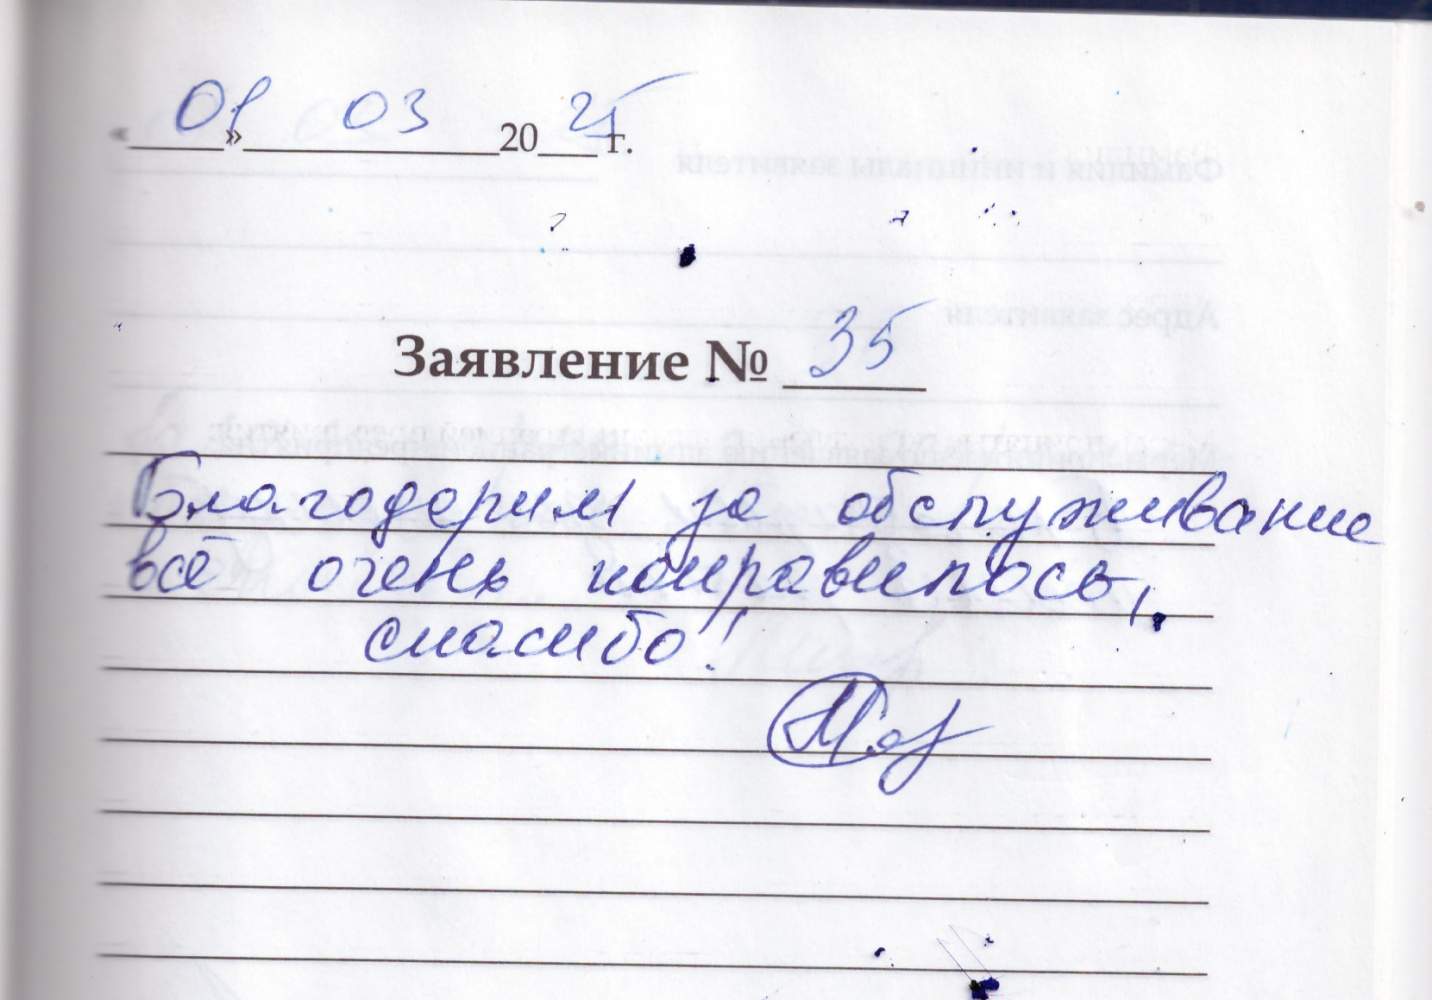 «01» 03 2025 г.
Заявление № 35
Благодарим за обслуживание
всё очень понравилось,
спасибо!